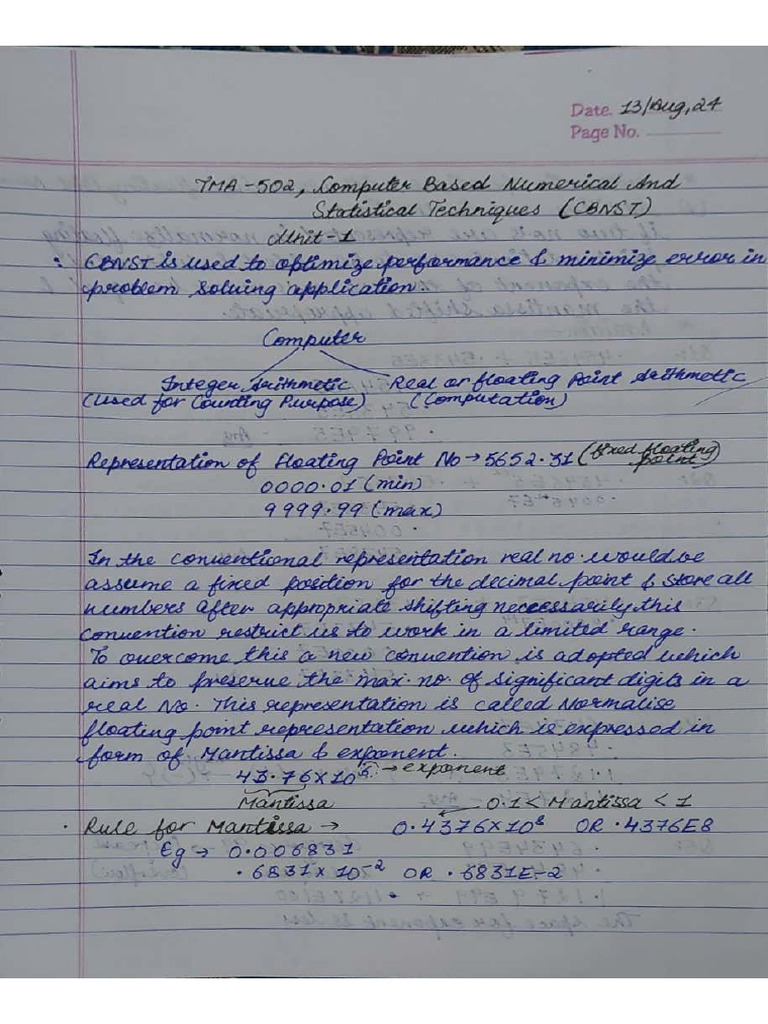 Date. 13/Aug, 24
Page No.
TMA-502, Computer Based Numerical And
Statistical Techniques (CBNST)
Unit-1
: CBNST is used to optimize performance & minimize error in
problem solving application.
Computer
Integer Arithmetic Real or floating Point Arithmetic
(used for Counting Purpose) (Computation)
Representation of Floating Point No → 5652.31 (fixed floating
point)
0000.01 (min)
9999.99 (max)
In the conventional representation real no. would be
assume a fixed position for the decimal point & store all
numbers after appropriate shifting neccessarily this
convention restrict us to work in a limited range.
To overcome this a new convention is adopted which
aims to preserve the max. no. of significant digits in a
real No. This representation is called Normalise
floating point representation which is expressed in
form of Mantissa & exponent.
43.76 × 10⁶ → exponent
Mantissa 0.1 < Mantissa < 1
. Rule for Mantissa → 0.4376 × 10⁸ OR .4376E8
Eg → 0.006831
.6831 × 10⁻² OR .6831E-2